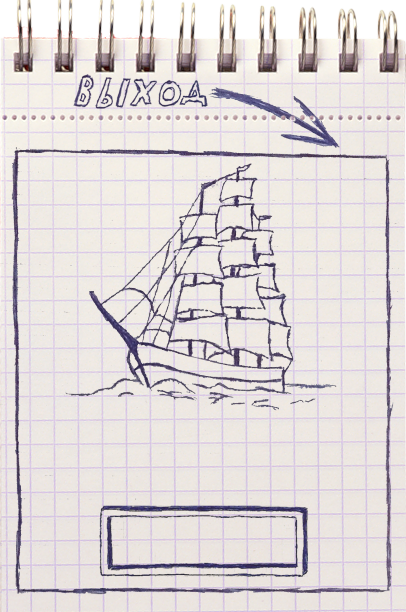 ВЫХОД